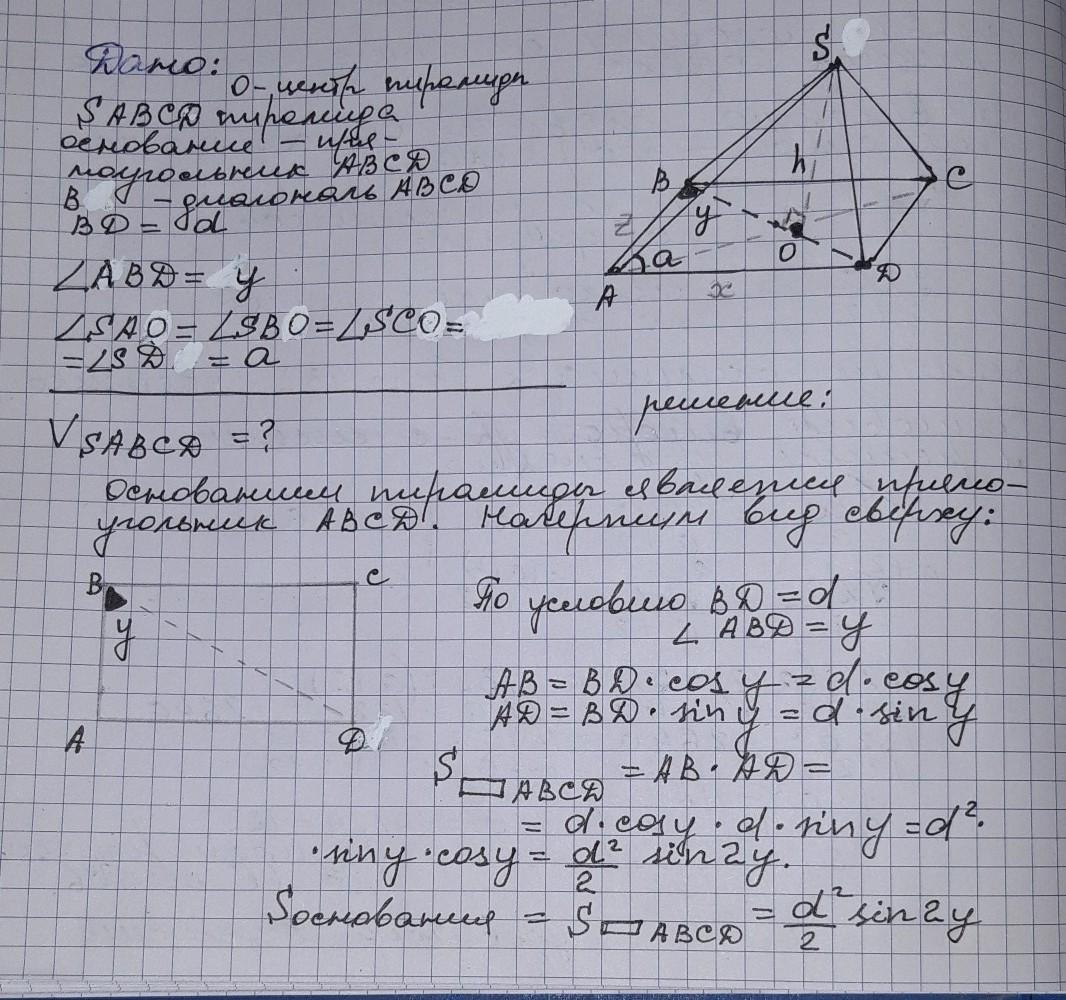 Дано:
O - центр пирамиды
SABCD пирамида
основание — пря-
моугольник ABCD
B - диагональ ABCD
BD = d
∠ABD = y
∠SAO = ∠SBO = ∠SCO =
= ∠SD = a
V SABCD = ?
S
B
h
C
y
z
a
O
A
x
D
решение:
Основанием пирамиды является прямо-
угольник ABCD. Начертим вид сверху:
B
C
y
A
D
По условию BD = d
∠ABD = y
AB = BD · cos y = d · cos y
AD = BD · sin y = d · sin y
S▭ABCD = AB · AD =
= d · cos y · d · sin y = d² ·
· sin y · cos y = d²/2 sin 2y.
Sоснования = S▭ABCD = d²/2 sin 2y